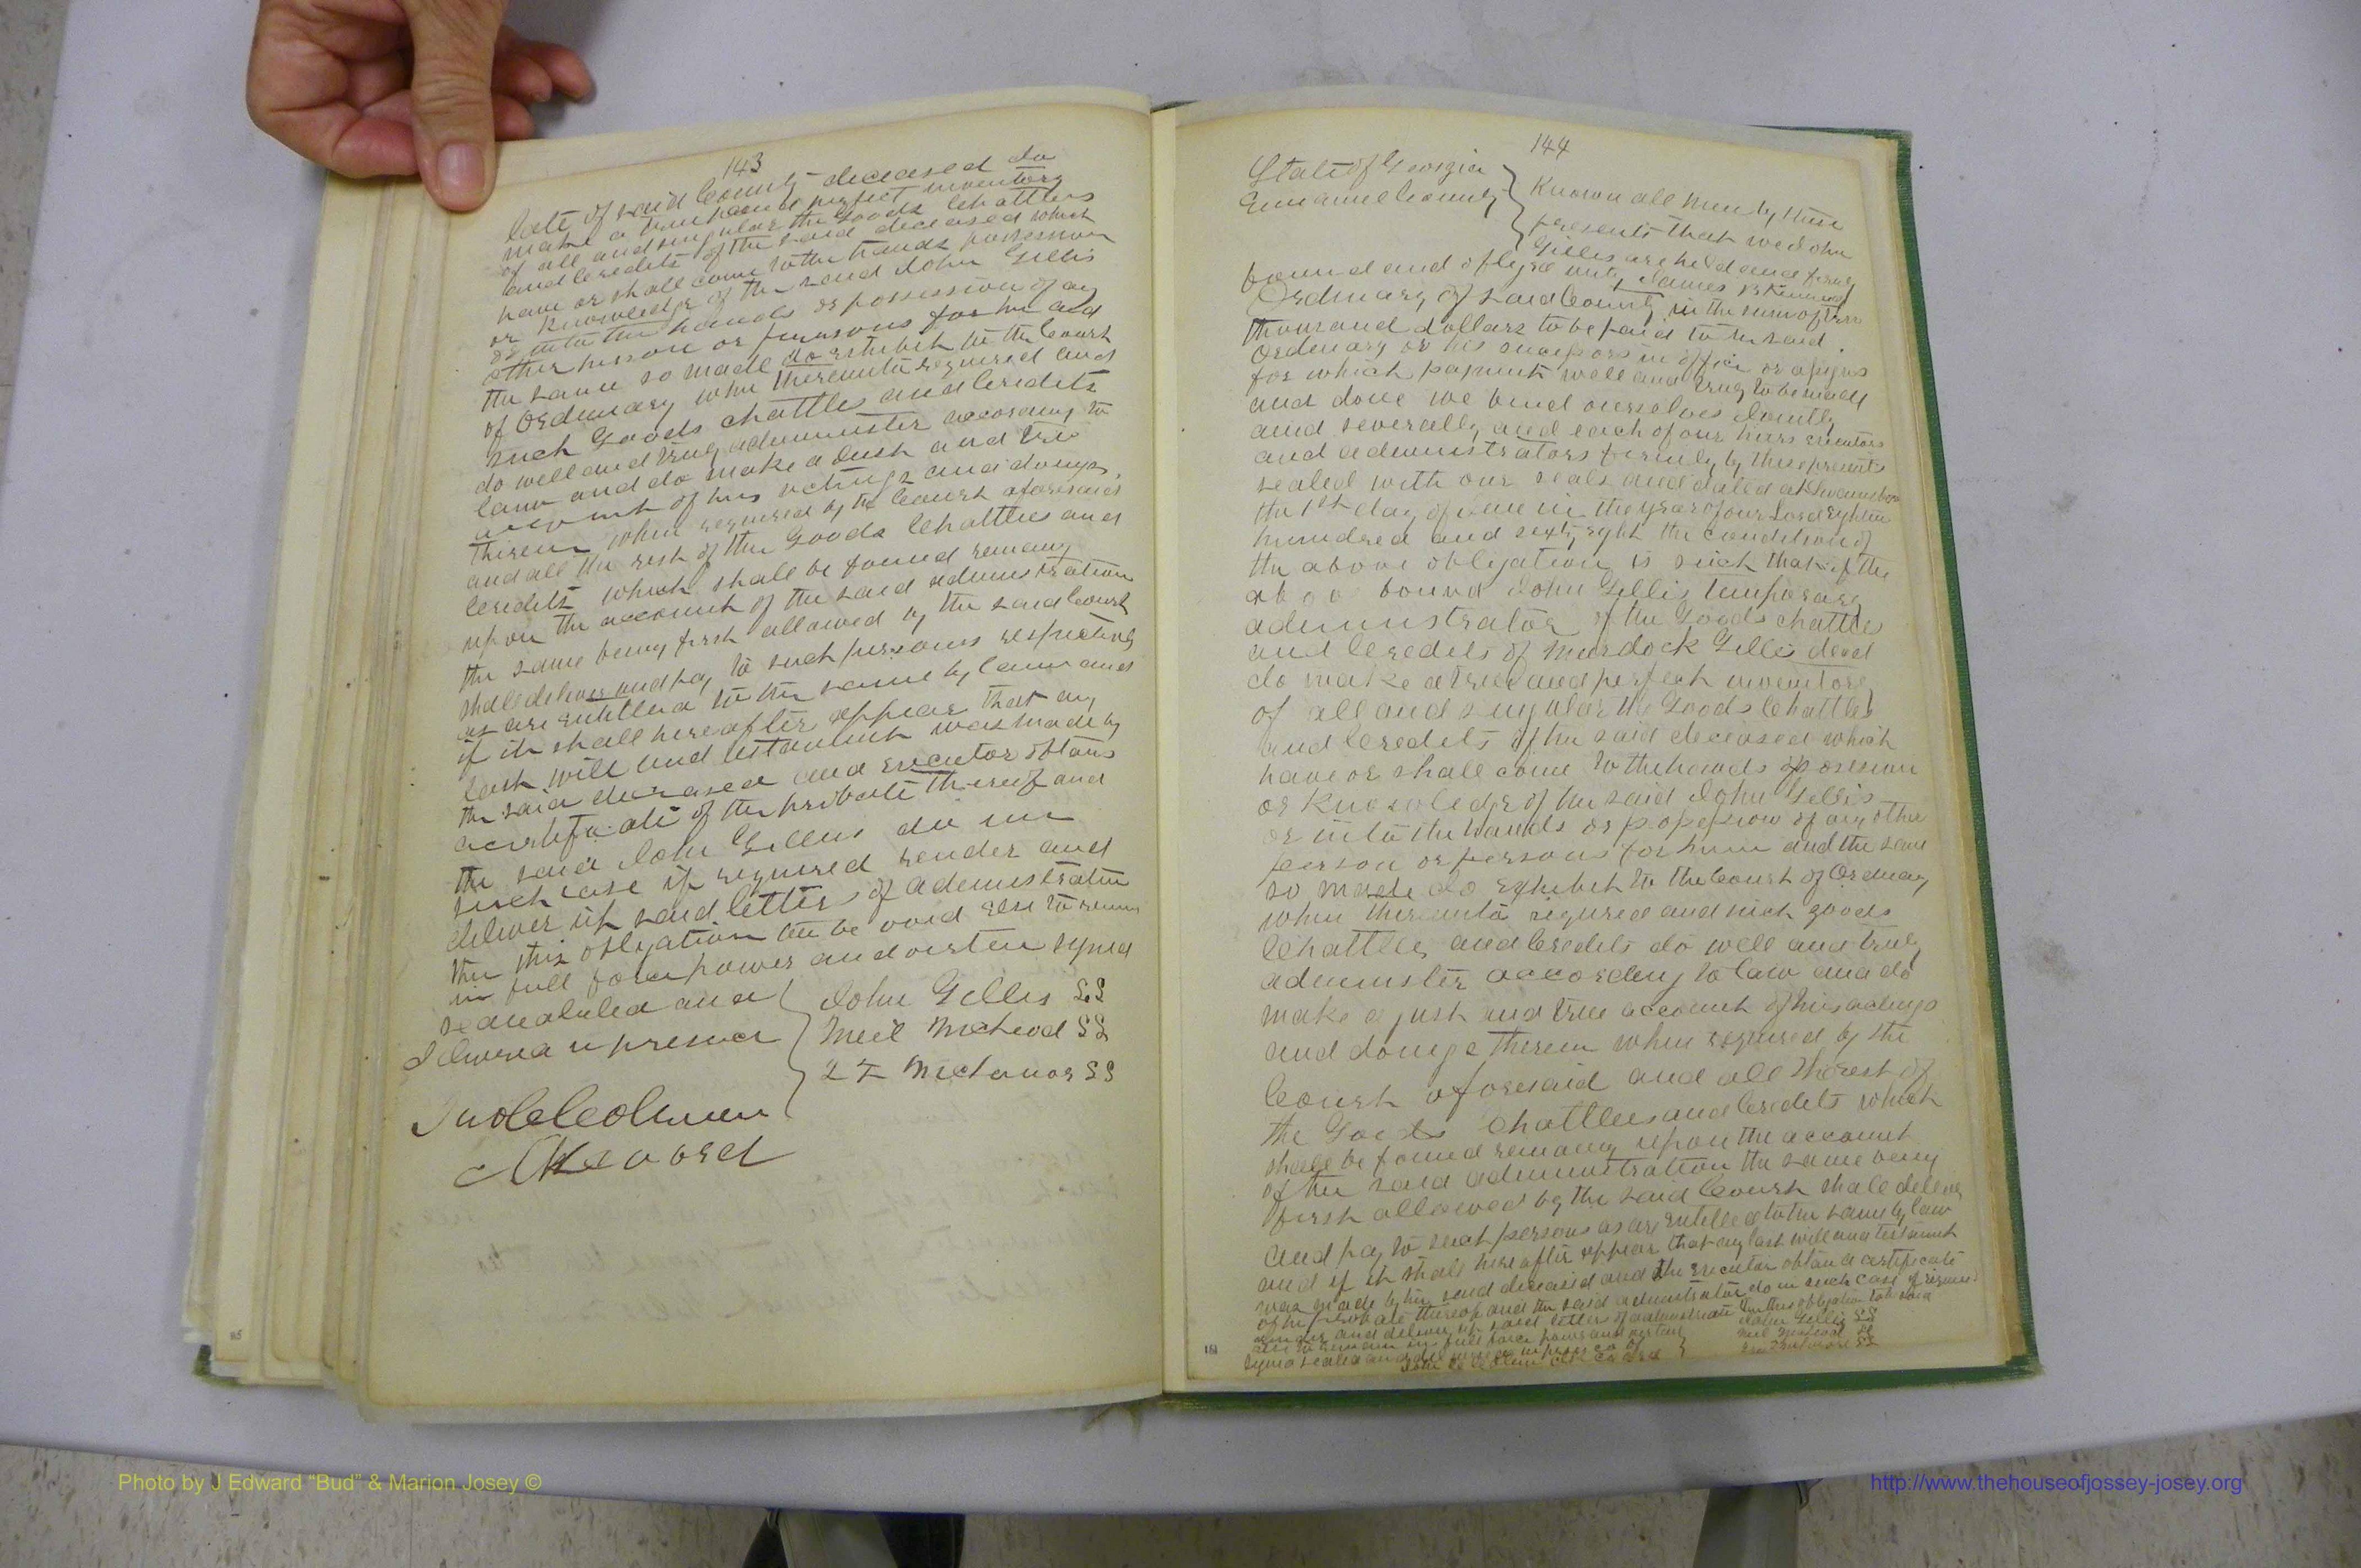 143
late of said County deceased do
make a true and perfect inventory
of all and singular the Goods Chattles
and Credits of the said deceased which
have or shall come to the hands possession
or knowledge of the said John Gillis
or into the hands or possession of any
other person or persons for him and
the same so made do exhibit to the Court
of Ordinary when thereunto required and
such Goods chattles and Credits
do well and truly administer according to
law and do make a Just and true
account of his actings and doings
therein when required by the Court aforesaid
and all the rest of the Goods Chattles and
Credits which shall be found remaing
upon the account of the said administration
the same being first allowed by the said Court
shall deliver and pay to such persons respectively
as are entitled to the same by law and
if it shall hereafter appear that any
last will and testament was made by
the said deceased and executor obtans
a certificate of the probate thereof and
the said John Gillis do in
such case if required render and
deliver up said letters of administration
then this obligation to be void else to remain
in full force power and virtue signed
sealed and
delivered in presence
John Gillis LS
Neil McLeod LS
John C Coleman
144
State of Georgia
Emanuel County
Know all men by these
presents that we John
Gillis are held and firmly
bound and obliged unto James B Kennedy
Ordinary of said County in the sum of
thousand dollars to be paid to the said
Ordinary or his successors in office or assigns
for which payment well and truly to be made
and done we bind ourselves Jointly
and severally and each of our heirs executors
and administrators firmly by these presents
sealed with our seals and dated at Swainsboro
the 1st day of June in the year of our Lord Eighteen
hundred and sixty eight the condition of
the above obligation is such that if the
above bound John Gillis temporary
administrator of the Goods chattles
and Credits of Murdock Gillis decd
do make a true and perfect inventory
of all and singular the Goods Chattles
and Credits of the said deceased which
have or shall come to the hands possession
or knowledge of the said John Gillis
or into the hands or possession of any other
person or persons for him and the same
so made do exhibit to the Court of Ordinary
when thereunto required and such goods
Chattles and Credits do well and truly
administer according to law and do
make a just and true account of his actings
and doings therein when required by the
Court aforesaid and all the rest of
the Goods Chattles and Credits which
shall be found remaing upon the account
of the said administration the same being
first allowed by the said Court shall deliver
and pay to such persons as are entitled to the same by law
and if it shall hereafter appear that any last will and testament
was made by the said deceased and the executor obtan a certificate
of the probate thereof and the said administrator do in such case if required
render and deliver up said letters of administration then this obligation to be void
else to remain in full force power and virtue
signed sealed and delivered in presence of
John Gillis LS
Neil McLeod LS
Photo by J Edward “Bud” & Marion Josey ©
http://www.thehouseofjossey-josey.org